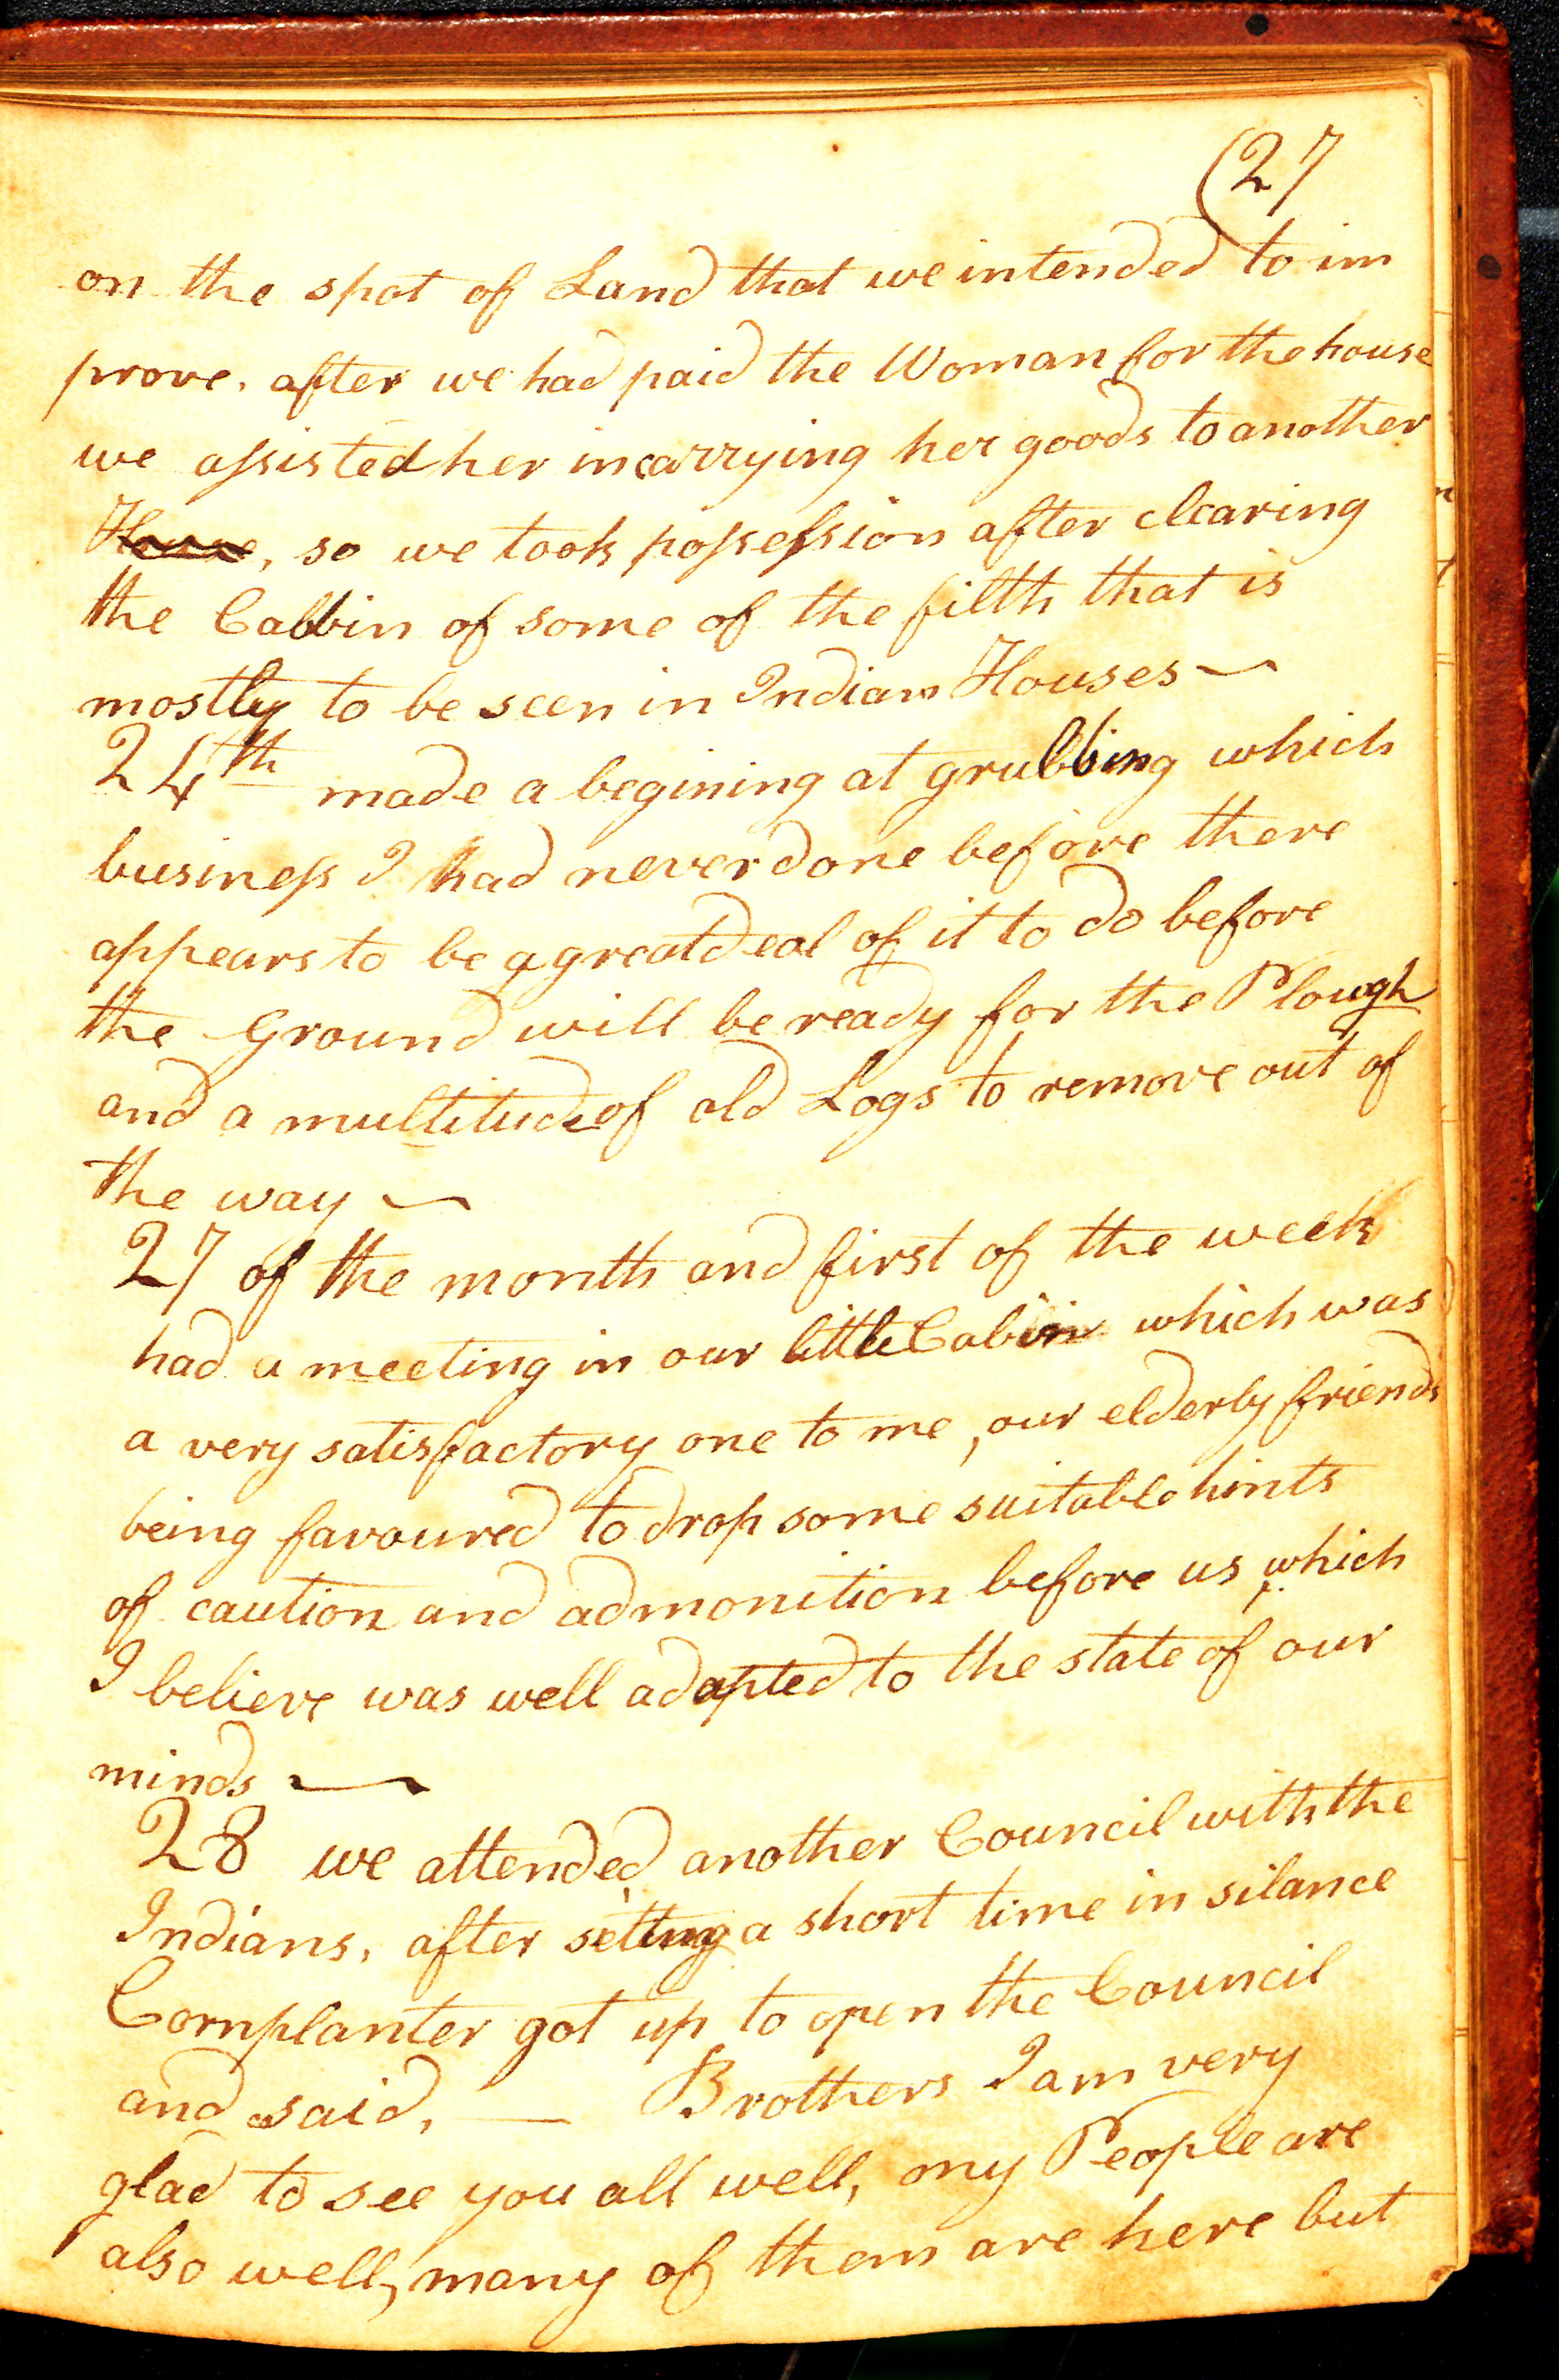 (27
on the spot of Land that we intended to im
prove. after we had paid the Woman for the house
we assisted her in carrying her goods to another
House, so we took possession after clearing
the Cabbin of some of the filth that is
mostly to be seen in Indian Houses —
24th made a begining at grubbing which
business I had never done before there
appears to be a great deal of it to do before
the Ground will be ready for the Plough
and a multitude of old Logs to remove out of
the way —
27 of the month and first of the week
had a meeting in our little Cabin which was
a very satisfactory one to me, our elderly friends
being favoured to drop some suitable hints
of caution and admonition before us, which
I believe was well adapted to the state of our
minds —
28 we attended another Council with the
Indians, after setting a short time in silance
Cornplanter got up to open the Council
and said, — Brothers I am very
glad to see you all well, my People are
also well, many of them are here but